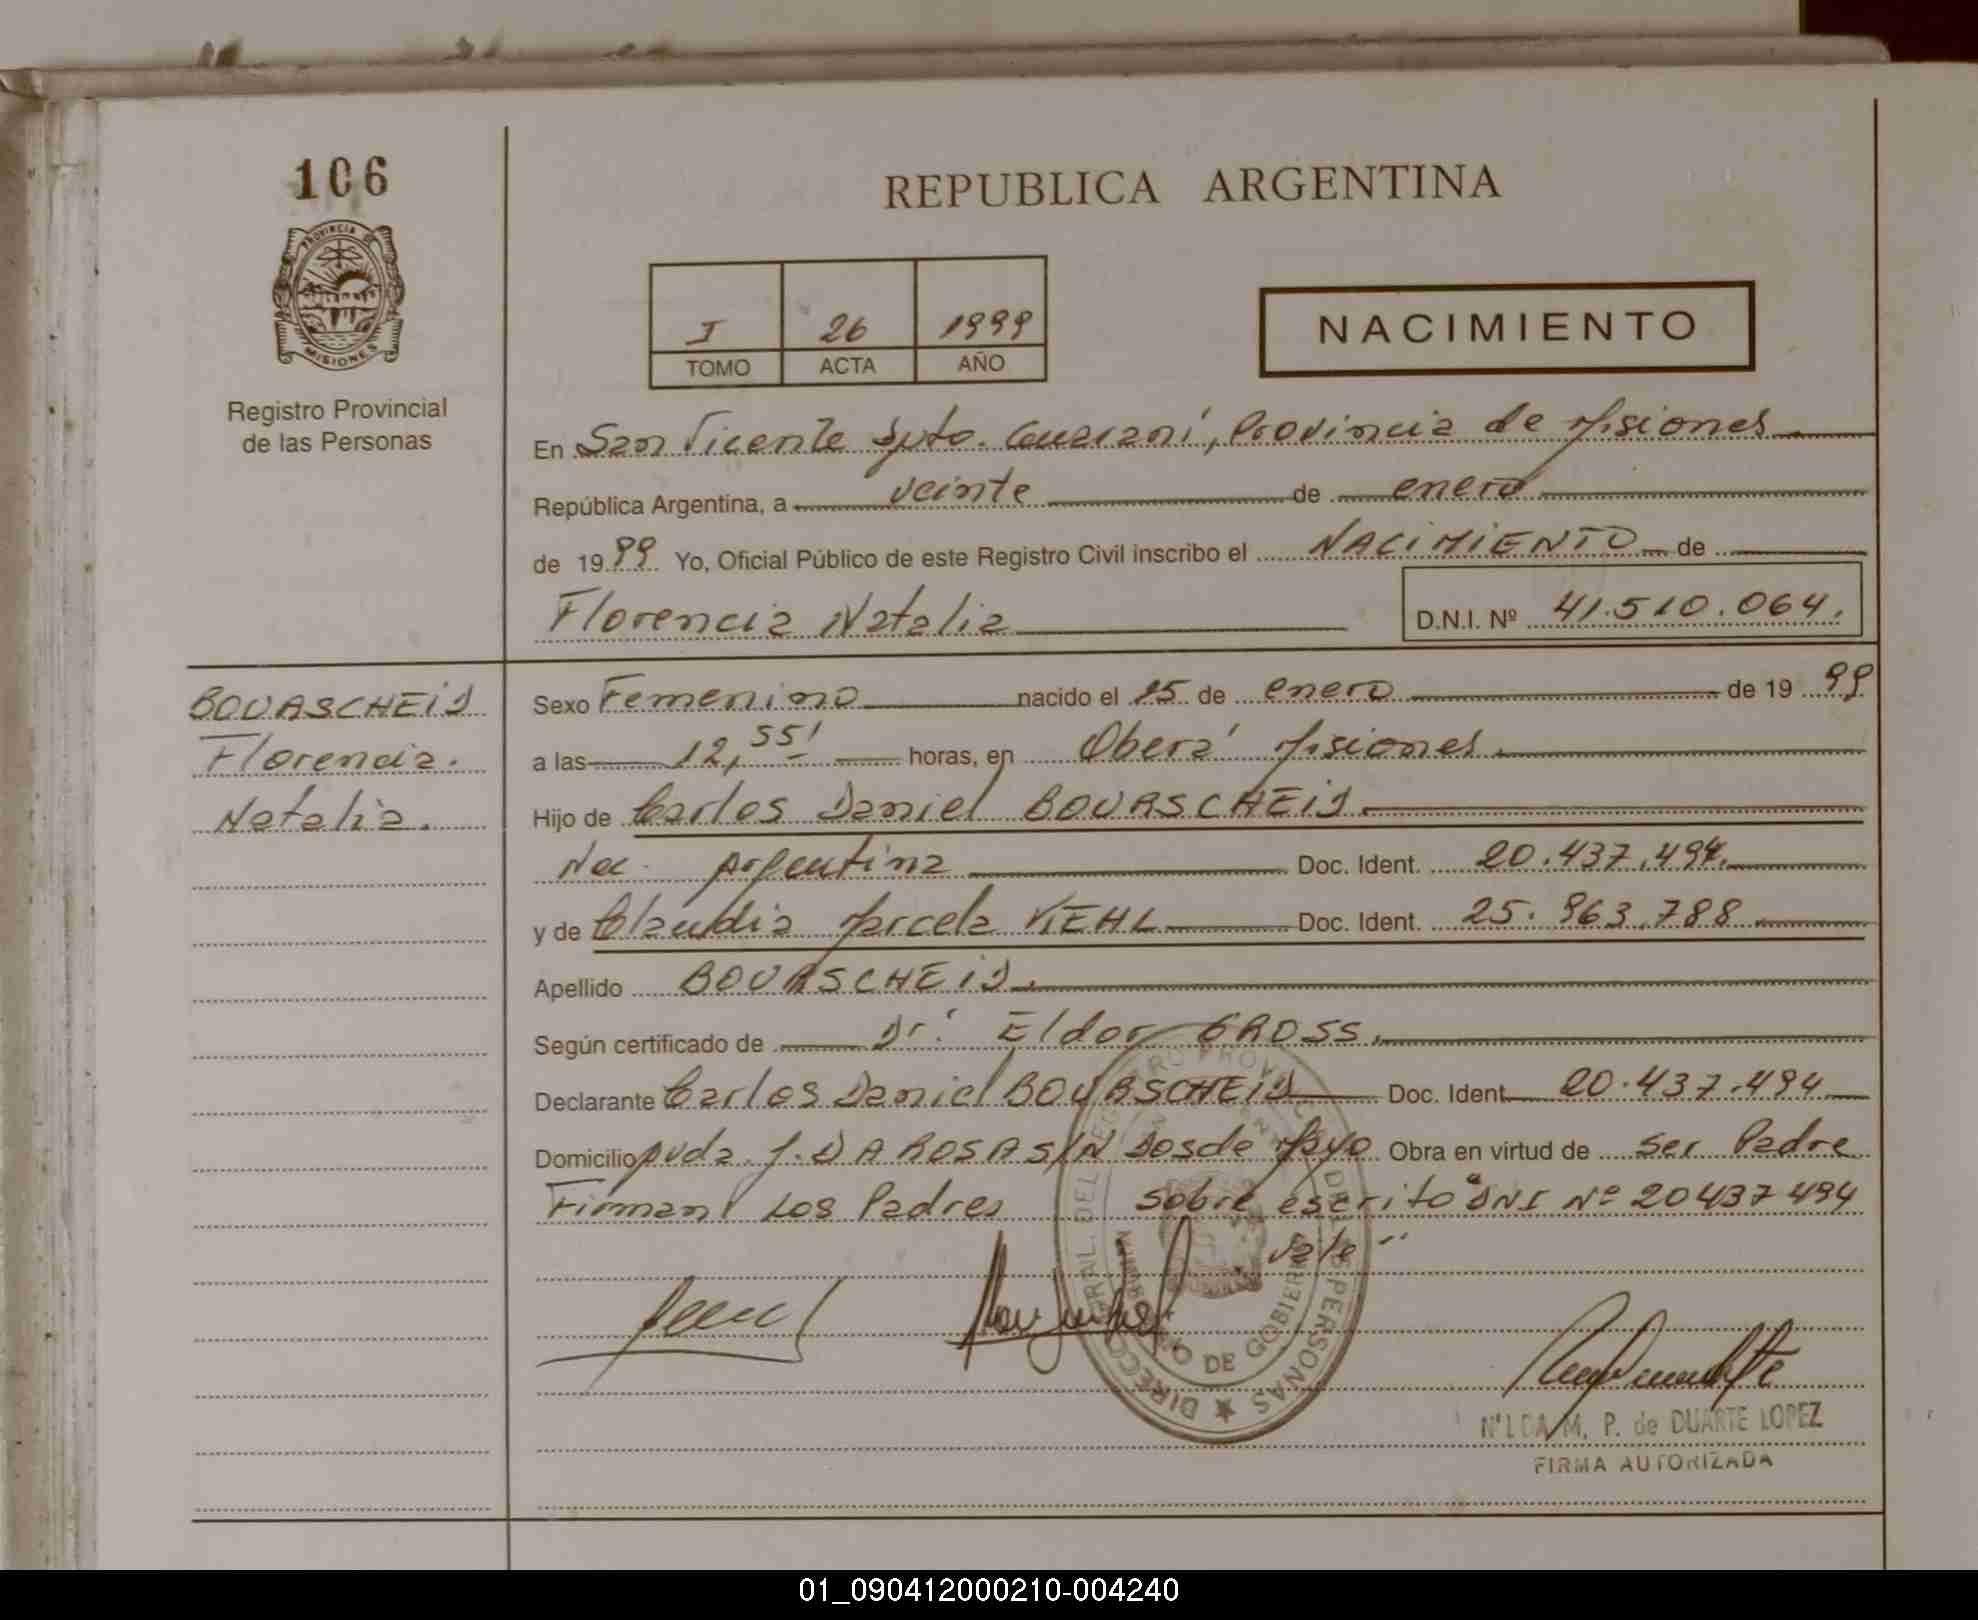 106
PROVINCIA DE
MISIONES
Registro Provincial
de las Personas
REPUBLICA ARGENTINA
I 26 1999
TOMO ACTA AÑO
NACIMIENTO
En San Vicente Dpto. Guaraní, Provincia de Misiones
República Argentina, a veinte de enero
de 1999 Yo, Oficial Público de este Registro Civil inscribo el NACIMIENTO de
Florencia Natalia D.N.I. Nº 41.510.064.
BOUASCHEID
Florencia.
Natalia.
Sexo Femenino nacido el 15 de enero de 1999
a las 12,55' horas, en Oberá Misiones.
Hijo de Carlos Daniel BOUASCHEID.
Nac. Argentina Doc. Ident. 20.437.494.
y de Claudia Marcela KEHL Doc. Ident. 25.963.788
Apellido BOUASCHEID.
Según certificado de Dr. Eldor GROSS.
Declarante Carlos Daniel BOUASCHEID Doc. Ident. 20.437.494
Domicilio Avda. J. DA ROSA S/N Dos de Mayo Obra en virtud de ser Padre
Firman Los Padres Sobre escrito "DNI Nº 20437494
Vale"
DE GOBIERNO
PERSONAS
M. P. de DUARTE LOPEZ
FIRMA AUTORIZADA
01_090412000210-004240